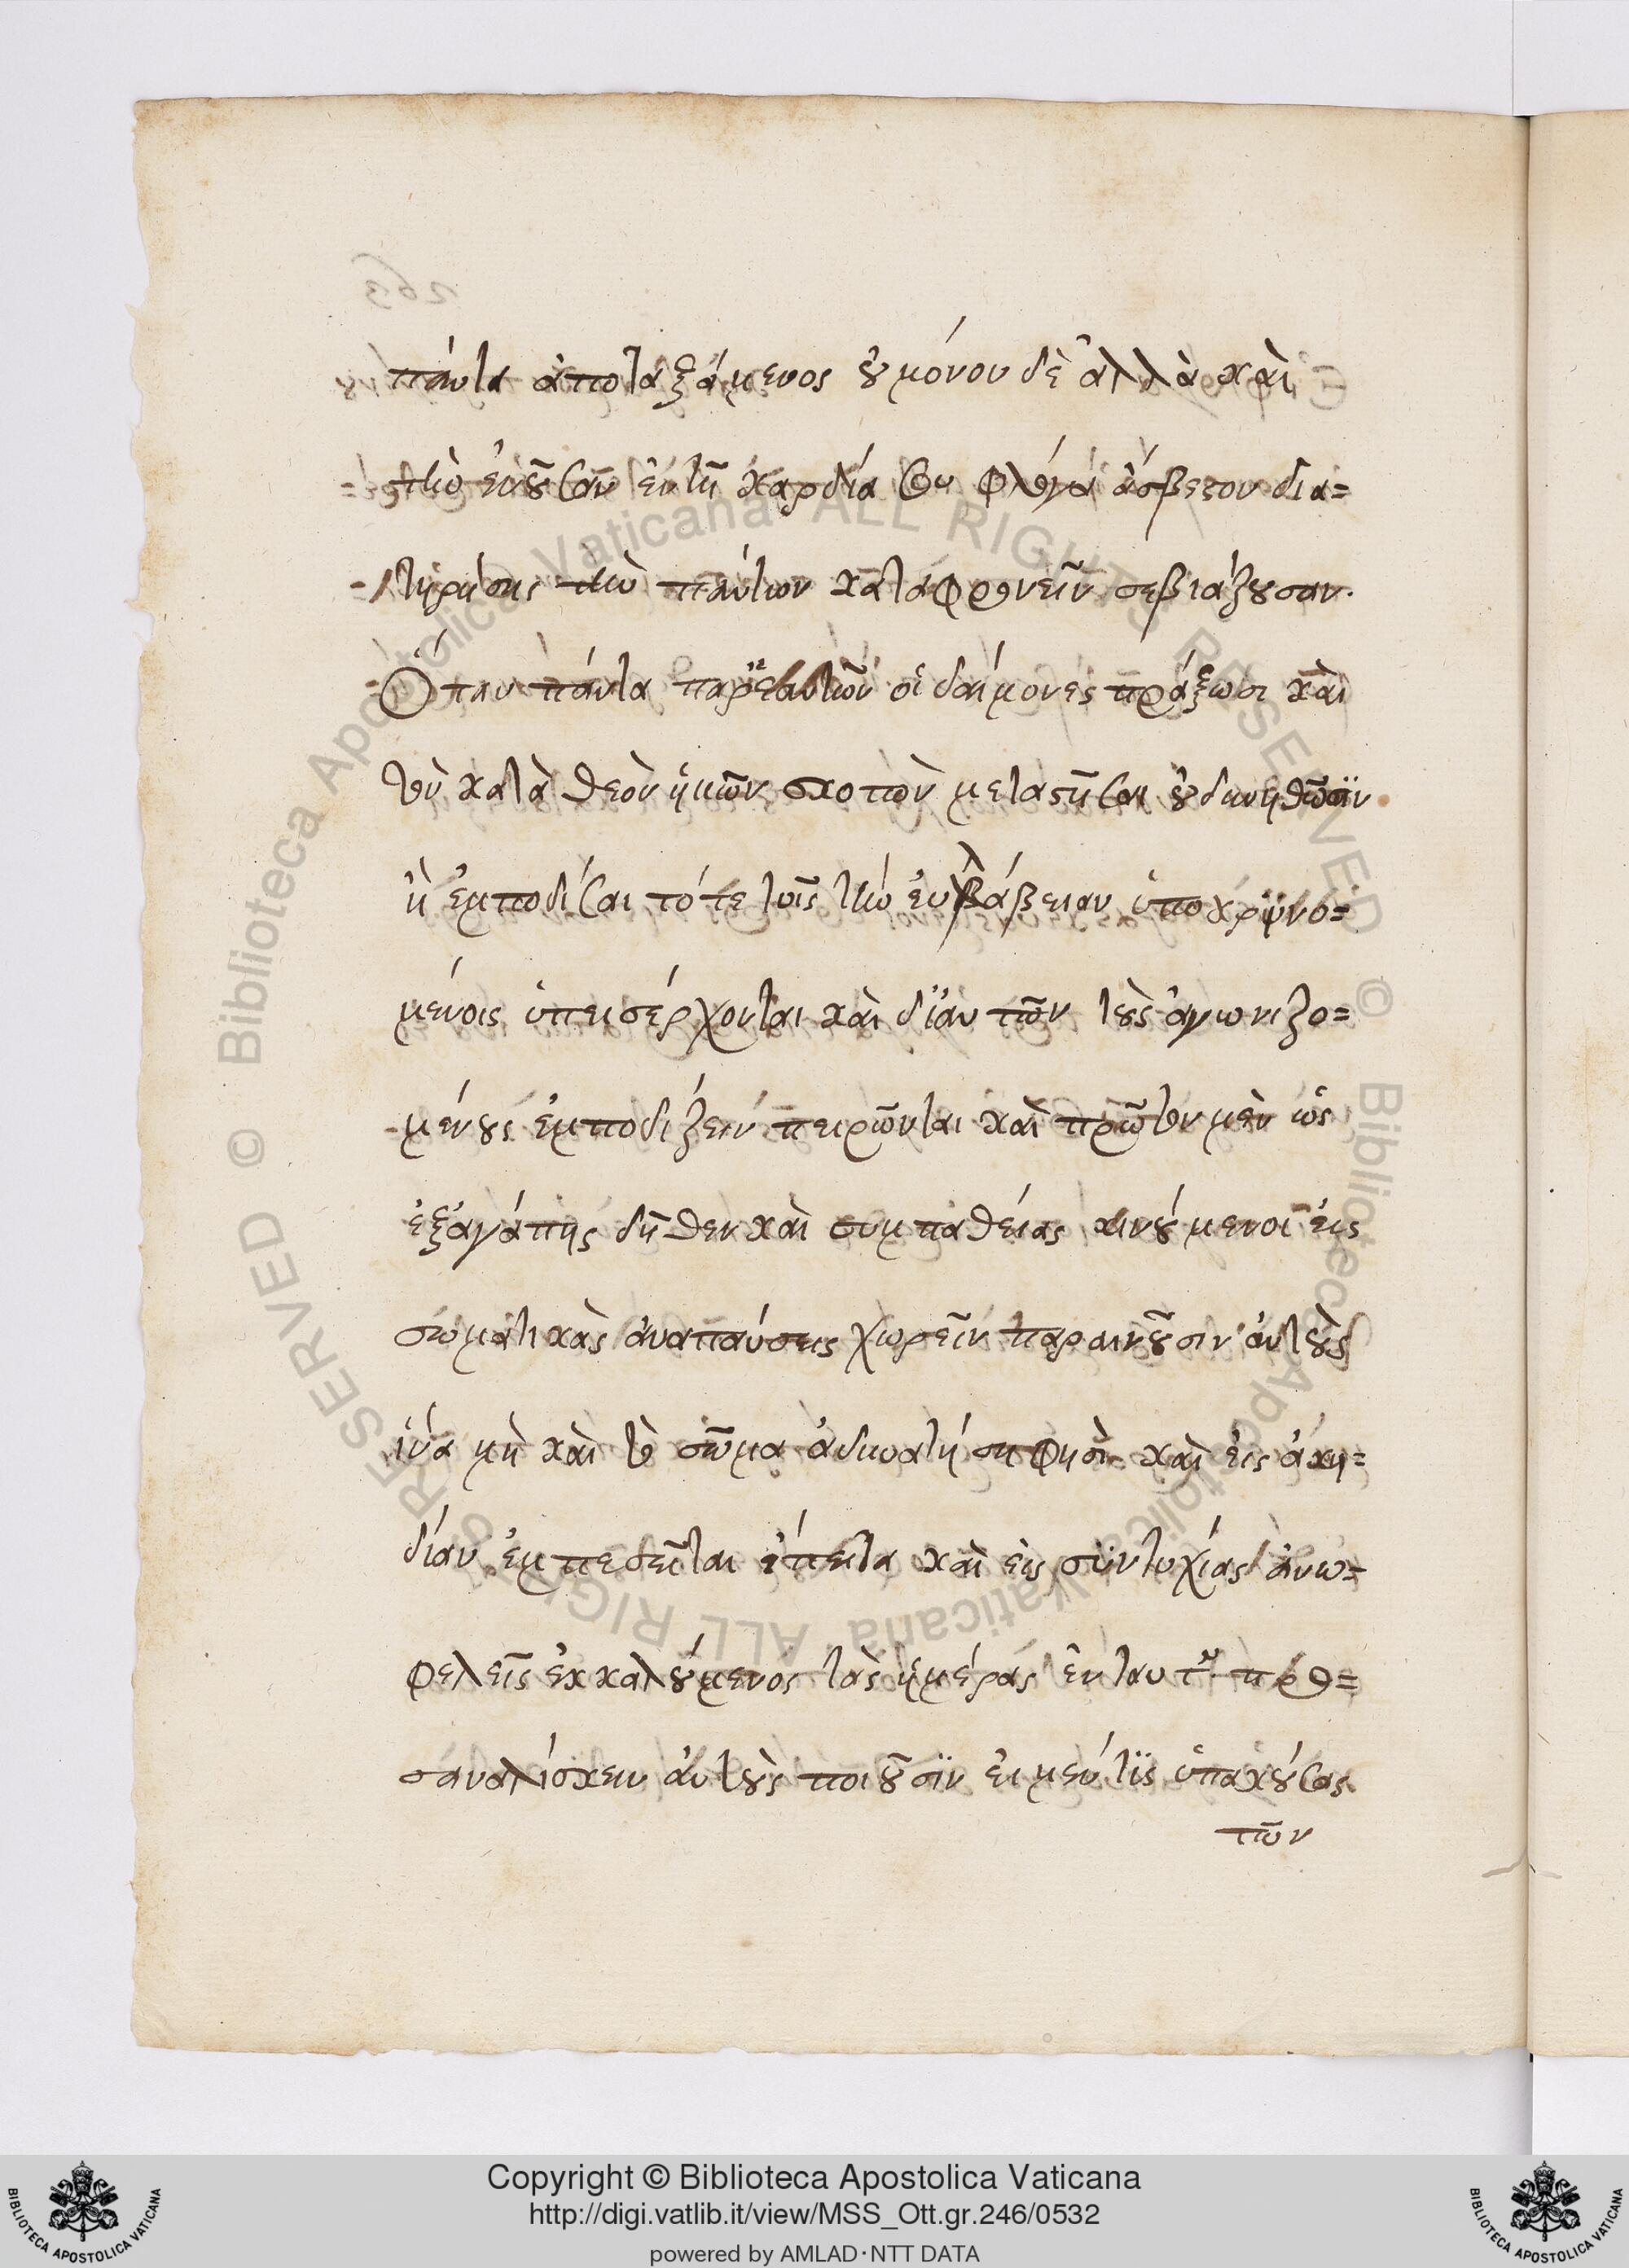 πάντα ἀποταξάμενος οὐ μόνον δὲ ἀλλὰ καὶ
τὴν ἐνοῦσαν ἐν τῇ καρδία σου φλόγα ἄσβεστον δια=
τηρήσης τὴν πάντων καταφρονεῖν σε βιάζουσαν.
Ὅταν πάντα παρ' ἑαυτῶν οἱ δαίμονες πράξωσι καὶ
τὸν κατὰ θεὸν ἡμῶν σκοπὸν μεταστῆσαι οὐ δυνηθῶσϊν
ἢ ἐμποδίσαι τότε τοῖς τὴν εὐλάβειαν ὑποκρϊνο=
μένοις ὑπεισέρχονται καὶ δι' αυτῶν τοὺς ἀγωνιζο=
μένους ἐμποδίζειν πειρῶνται καὶ πρῶτον μὲν ὡς
ἐξ ἀγάπης δῆθεν καὶ συμπαθείας κινούμενοι εἰς
σωματικὰς ἀναπαύσεις χωρεῖν παραινοῦσιν αὐτοὺς
ἵνα μὴ καὶ τὸ σῶμα ἀδυνατήση φησὶ καὶ εἰς ἀκη=
δίαν ἐμπεσεῖται ἔπειτα καὶ εἰς συντυχίας ἀνω=
φελεῖς ἐκκαλούμενος τὰς ἡμέρας ἐν ταύτ προ=
σαναλίσκειν αὐτοὺς ποιοῦσϊν εἰ μέν τϊς ὑπακούσας
τῶν
Copyright © Biblioteca Apostolica Vaticana
http://digi.vatlib.it/view/MSS_Ott.gr.246/0532
powered by AMLAD·NTT DATA